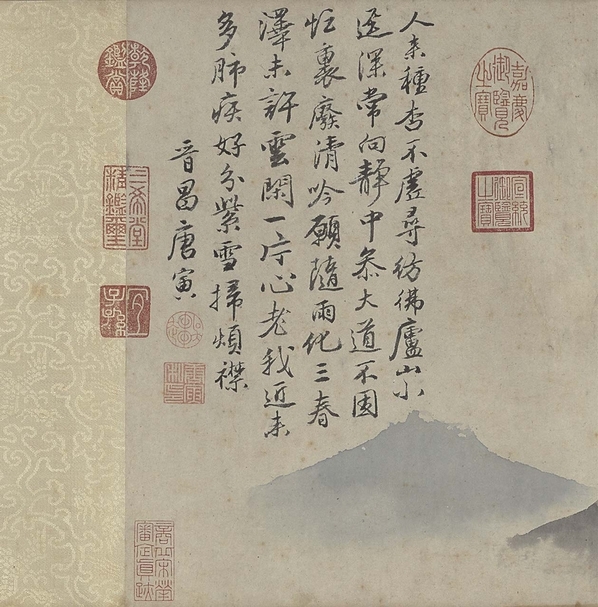 嘉慶御覽之寶
宣統御覽之寶
人来種杏不虛尋彷彿廬山小
逕深常向靜中叅大道不因
忙裏廢清吟願隨雨化三春
澤未許雲閑一片心老我近来
多肺疾好分紫雪掃煩襟
晉昌唐寅
乾隆鑑賞
三希堂精鑑璽
宜子孫
商丘宋犖審定真跡